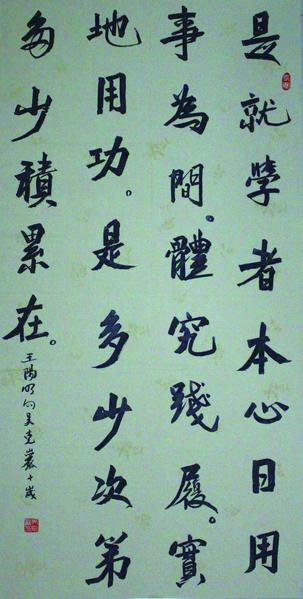 是就學者本心日用
事為間。體究踐履。實
地用功。是多少次第
多少積累在。
王陽明句吴克嚴十歲